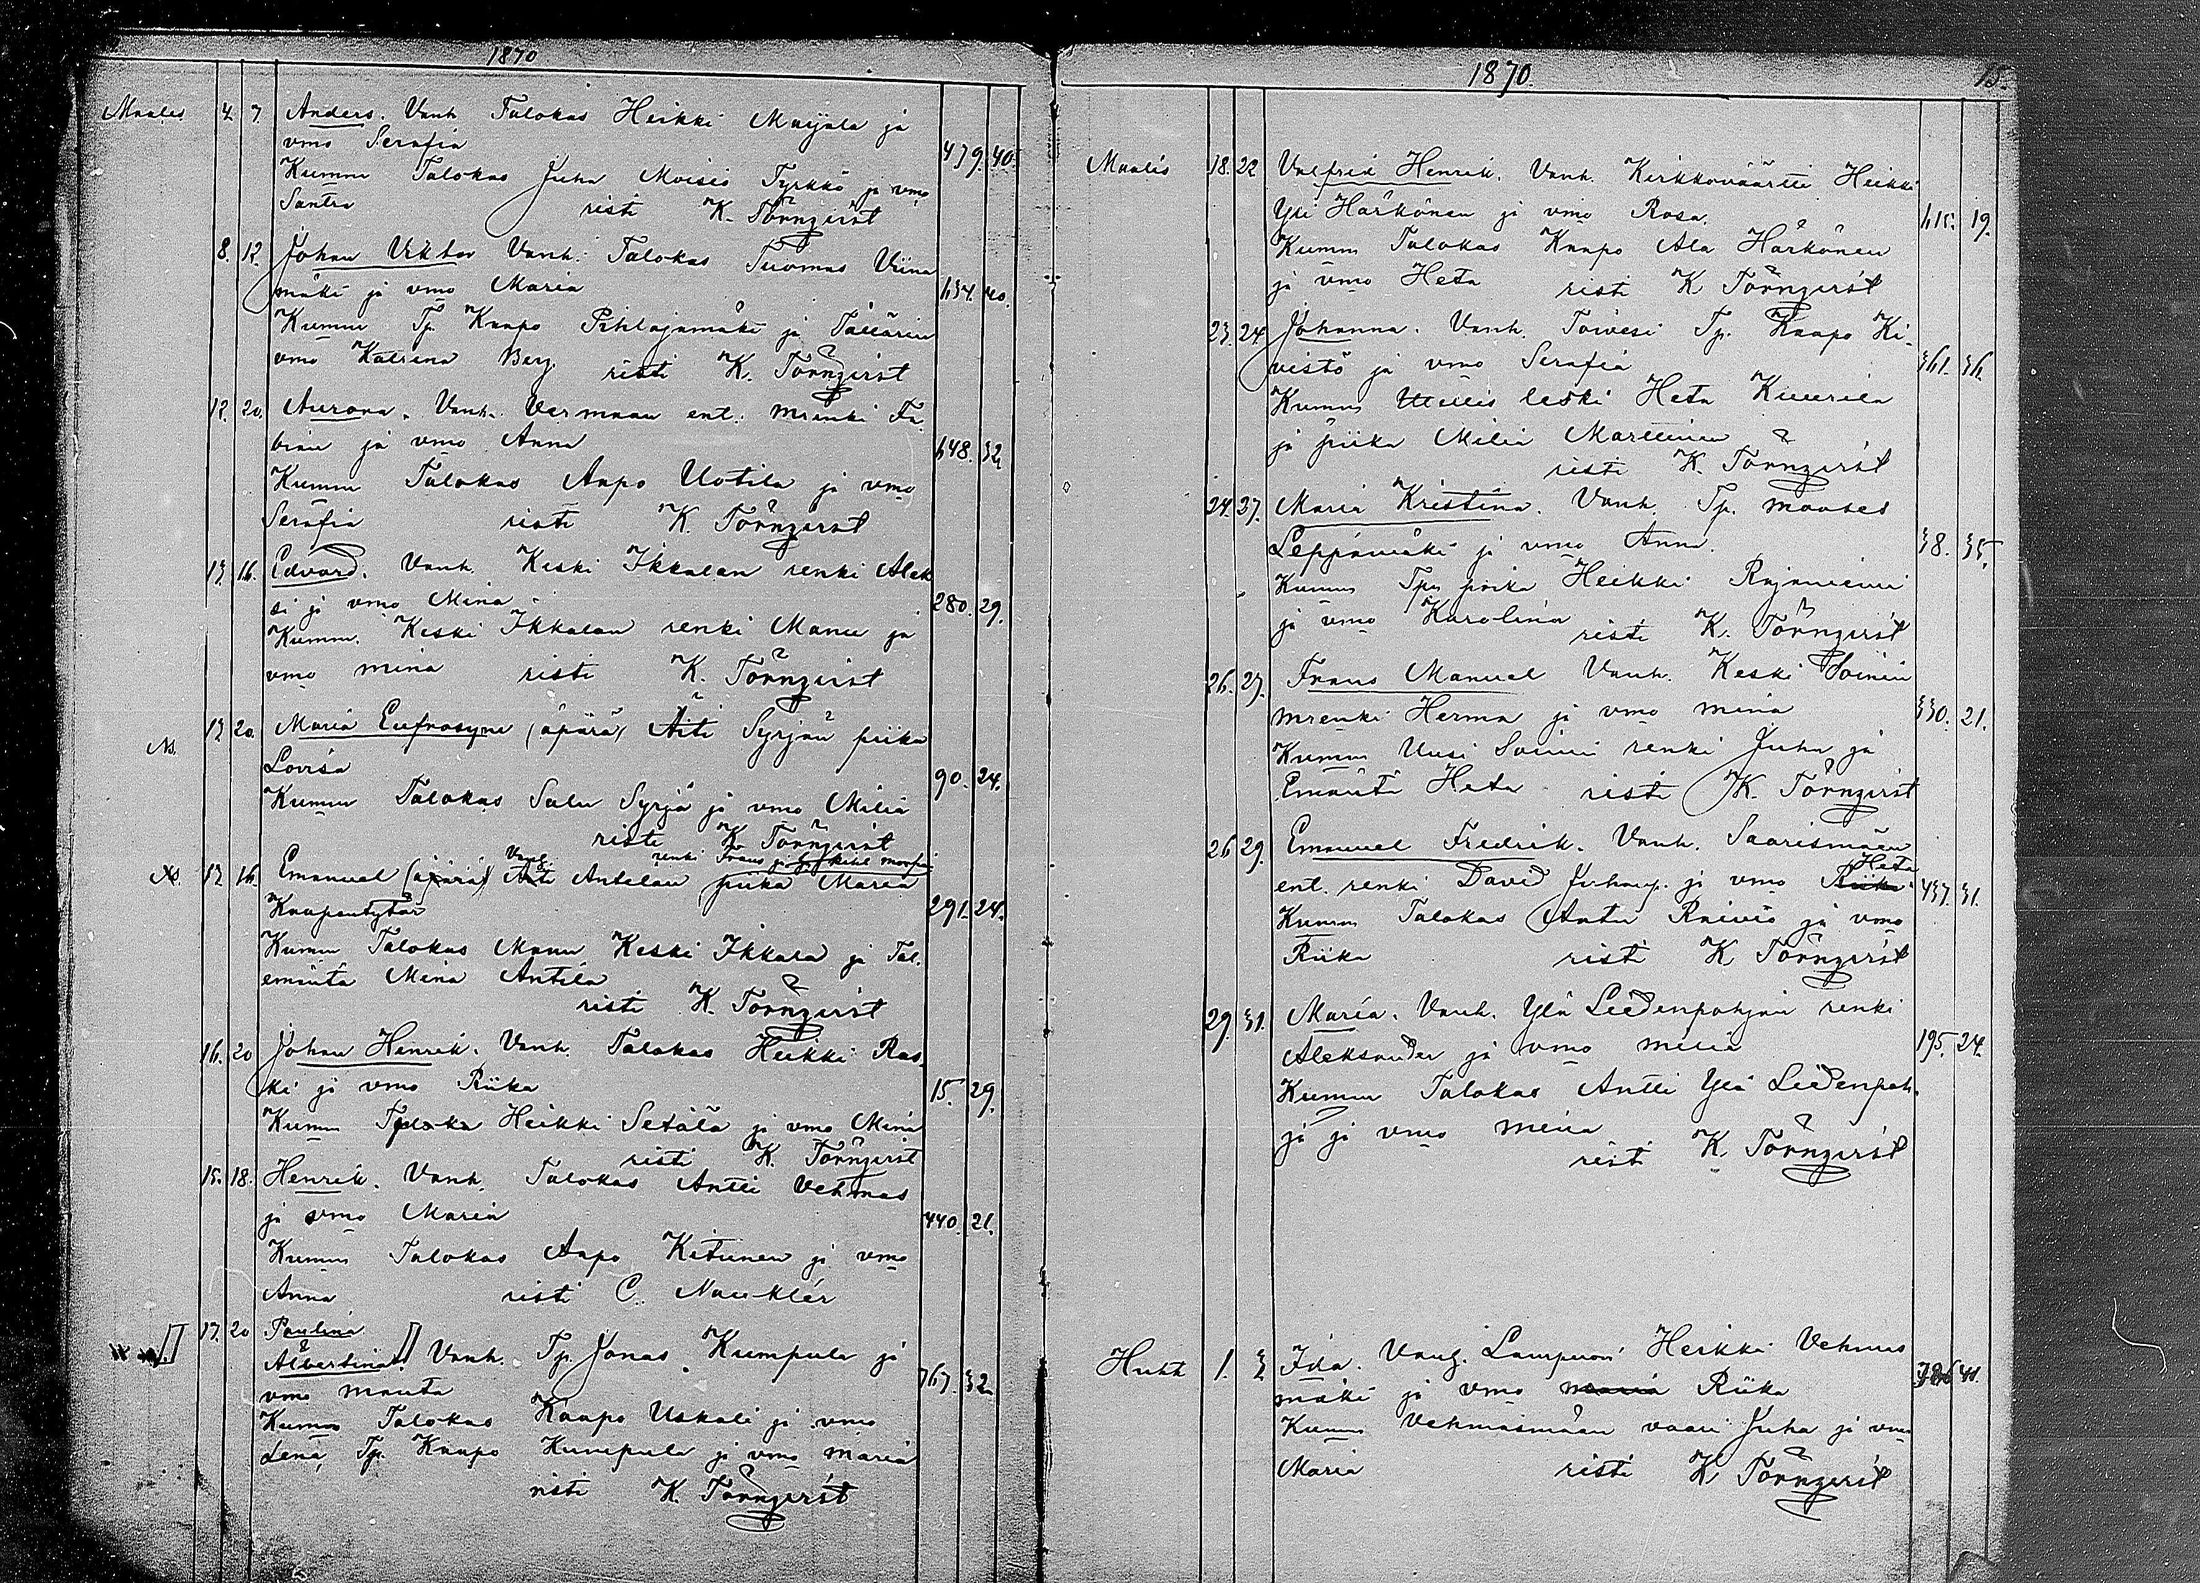 1870
Maalis 4. 7 Anders. Vanh. Talokas Heikki Maijala ja
vmo Serafia 479. 40.
Kumm Talokas Juha Moisio Tyrkkö ja vmo
Santra risti K. Törnqvist
8. 12. Johan Viktor Vanh. Talokas Tuomas Viina
mäki ja vmo Maria 634. 40.
Kumm Tp. Kaapo Pihlajamäki ja
vmo Katrina Berg. risti K. Törnqvist
12. 20. Aurora. Vanh. Vermaan ent. mrenki Fa-
bian ja vmo Anna 648. 32.
Kumm Talokas Aapo Uotila ja vmo
Serafia risti K. Törnqvist
13 16. Edvard. Vanh. Keski Ikkalan renki Alek
si ja vmo Mina 280. 29.
Kumm. Keski Ikkalan renki Manu ja
vmo mina risti K. Törnqvist
13 20. Maria Eufrosyne (äpärä) Äiti Syrjän piika
Lovisa 90. 24.
Kumm Talokas Salu Syrjä ja vmo Milia
risti K. Törnqvist
Vanh. renki Frans ja
13 16. Emanuel (äpärä) Äiti Antilan piika Maria
Kaapontytär 291. 24.
Kumm Talokas Manu Keski Ikkala ja Tal.
emäntä Mina Antila
risti K. Törnqvist
16. 20 Johan Henrik. Vanh. Talokas Heikki Ras
ki ja vmo Riika 15. 29.
Kumm Heikki Setälä ja vmo Mina
risti K. Törnqvist
15. 18. Henrik. Vanh. Talokas Antti Vehmas
ja vmo Maria 440. 21.
Kumm Talokas Aapo Ketunen ja vmo
Anna risti C. Nauklér
17. 20 Paulina
Albertina Vanh. Tp. Jonas Kumpula ja
vmo manta 767. 32.
Kumm Talokas Kaapo Uskali ja vmo
Lena, Tp. Kaapo Kumpula ja vmo maria
risti K. Törnqvist
1870. 15.
Maalis 18. 22 Valfrid Henrik. Vanh. Kirkkoväärtti Heikki
Yli Härkönen ja vmo Rosa. 615. 19.
Kumm Talokas Kaapo Ala Härkönen
ja vmo Heta risti K Törnqvist
23. 24 Johanna. Vanh. Toivesi Tp. Kaapo Ki-
vistö ja vmo Serafia 361. 36.
Kumm leski Heta Kuurila
ja piika Milia Marttinen
risti K. Törnqvist
24. 27. Maria Kristina. Vanh. Tp. mooses
Leppämäki ja vmo Anna. 38. 35.
Kumm Tpn poika Heikki Rajaniemi
ja vmo Karolina risti K. Törnqvist
26. 27. Frans Manuel Vanh. Keski Soinin
mrenki Herma ja vmo mina 330. 21.
Kumm Uusi Soinin renki Juha ja
Emäntä Heta risti K. Törnqvist
26 29. Emanuel Fredrik. Vanh. Saarismäen
Heta
ent. renki David Juhanp. ja vmo Riika 437. 31.
Kumm Talokas Antu Raivio ja vmo
Riika risti K Törnqvist
29. 31. Maria. Vanh. Ylä Liedenpohjan renki
Aleksander ja vmo miina 195. 24.
Kumm Talokas Antti Ylä Liedenpoh
ja ja vmo miina
risti K Törnqvist
Huht 1. 3 Ida. Vanh. Lampuoti Heikki Vehmas
mäki ja vmo maria Riika
Kumm Vehmasmäen vaari Juha ja vmo
Maria risti K Törnqvist